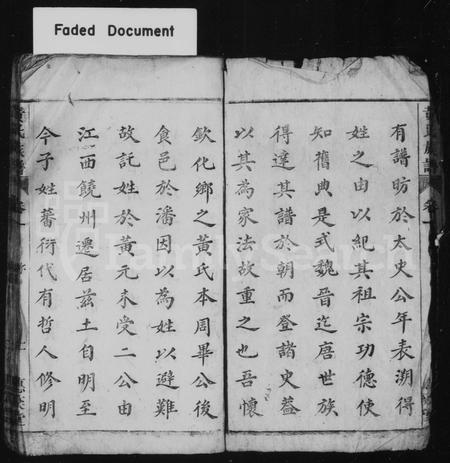 Faded Document
有譜昉於太史公年表溯得
姓之由以紀其祖宗功德使
知舊典是式魏晉迄唐世族
得達其譜於朝而登諸史蓋
以其為家法故重之也吾懷
欽化鄉之黃氏本周畢公後
食邑於潘因以為姓以避難
故託姓於黃元末受二公由
江西饒州遷居茲土自明至
今子姓蕃衍代有哲人修明
黃氏族譜
卷一
FamilySearch